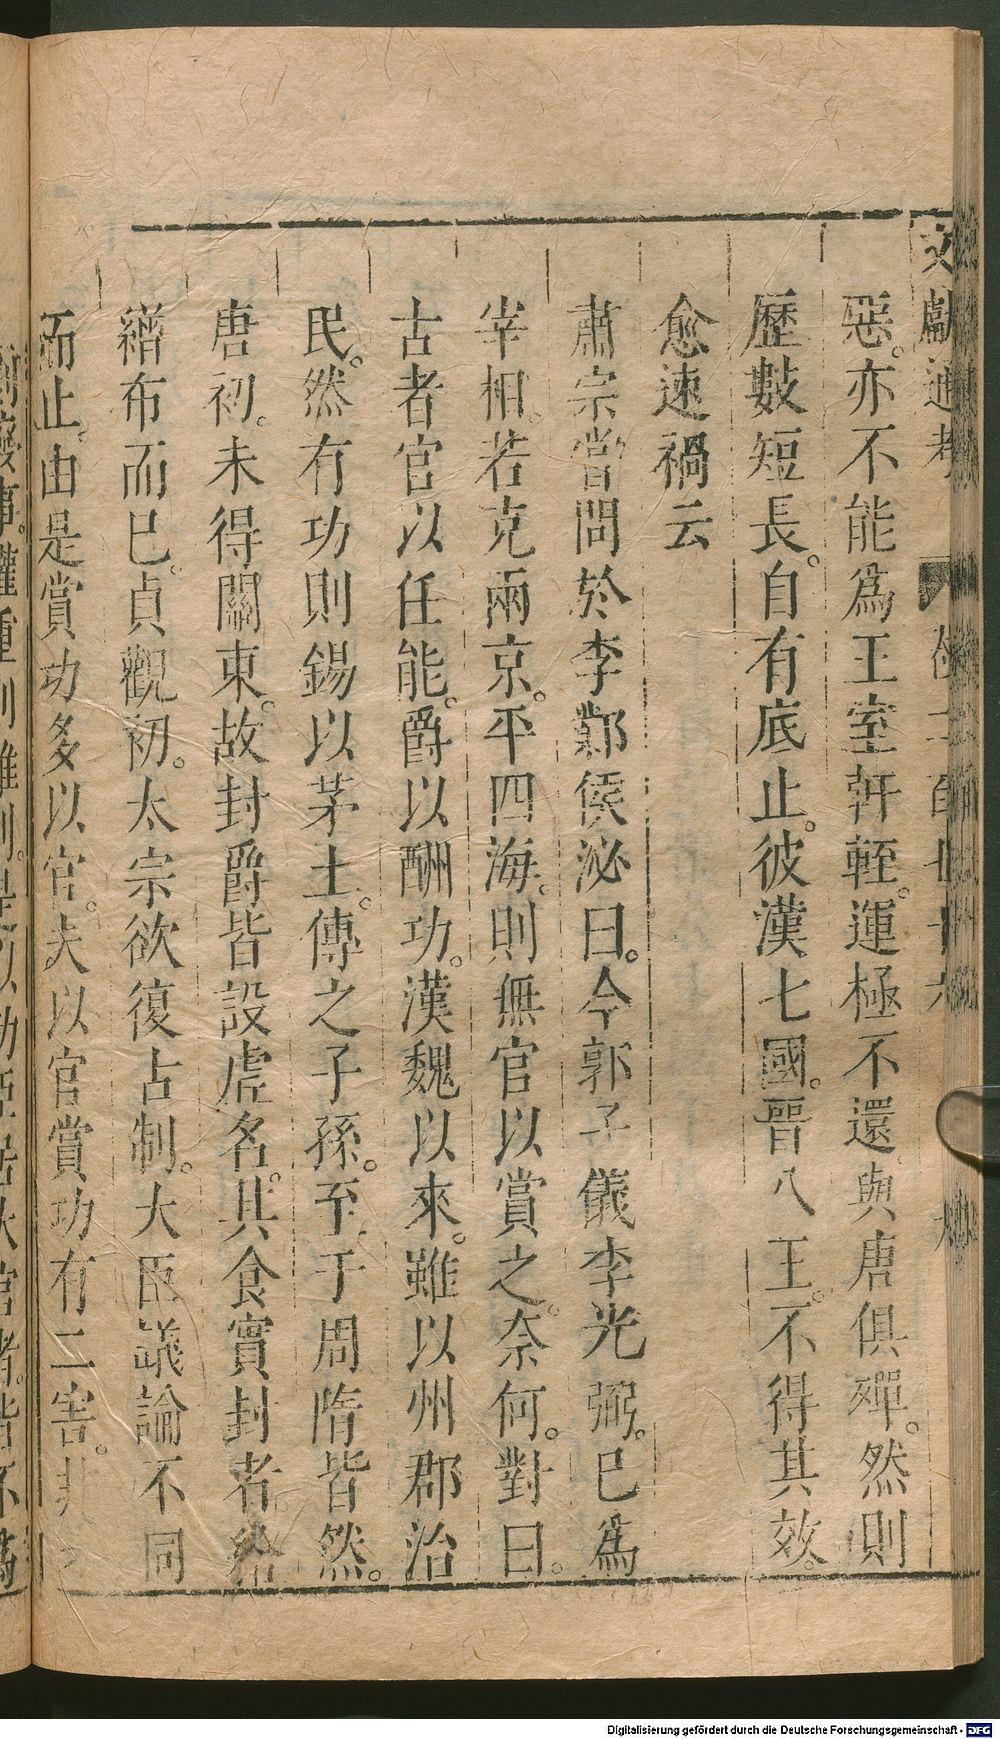 文獻通考 卷二百七十六 九
惡。亦不能爲王室軒輊。運極不還。與唐俱殫。然則
歷數短長。自有底止。彼漢七國。晉八王。不得其效。
愈速禍云
肅宗嘗問於李鄴侯泌曰。今郭子儀李光弼。已爲
宰相。若克兩京。平四海。則無官以賞之。奈何。對曰。
古者官以任能。爵以酬功。漢魏以來。雖以州郡治
民。然有功則錫以茅土。傳之子孫。至于周隋皆然。
唐初。未得關東。故封爵皆設虛名。其食實封者。給
繒布而已。貞觀初。太宗欲復古制。大臣議論不同
而止。由是賞功多以官。夫以官賞功有二害。非
事。權重則難制。是以功臣居大官者。皆不爲
Digitalisierung gefördert durch die Deutsche Forschungsgemeinschaft - DFG